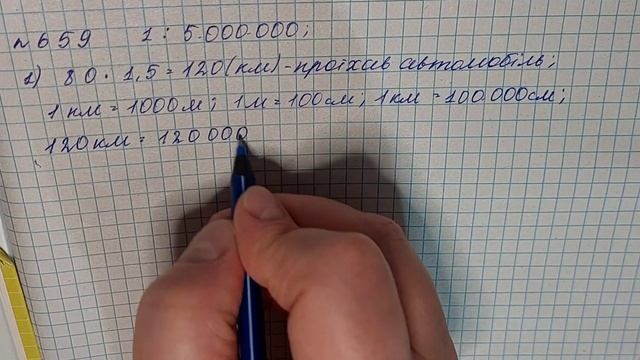 №659 1 : 5.000.000;
1) 80 · 1,5 = 120(км) - проїхав автомобіль;
1 км = 1000м; 1м = 100см; 1км = 100.000см;
120км = 120 000